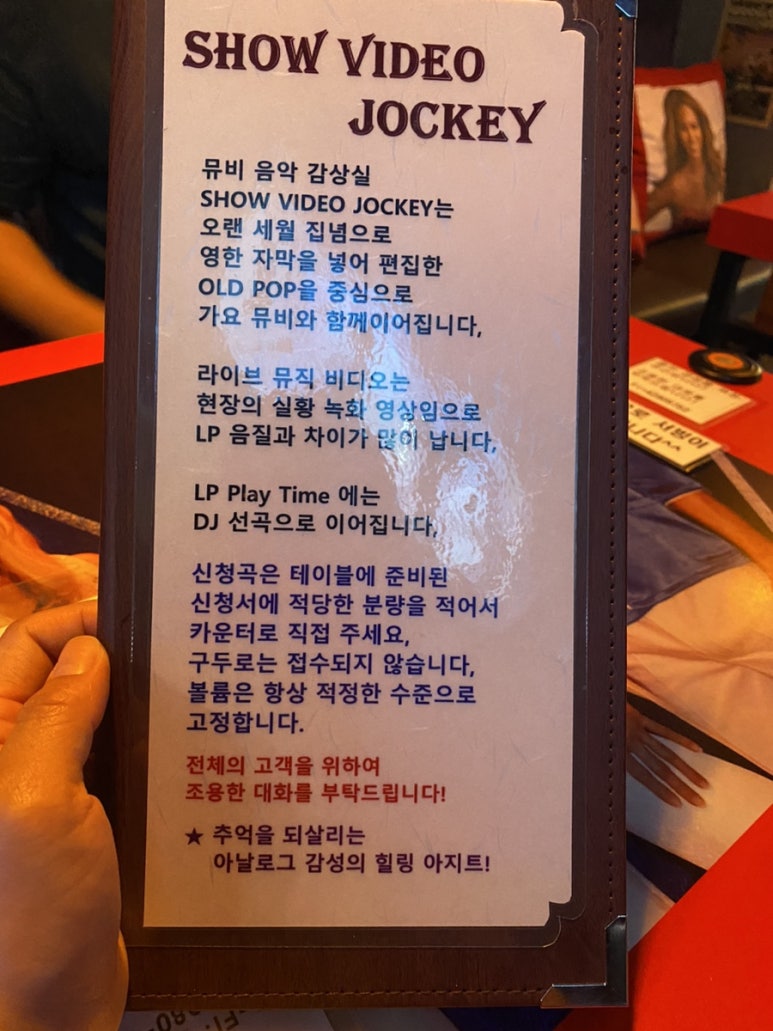 SHOW VIDEO
JOCKEY
뮤비 음악 감상실
SHOW VIDEO JOCKEY는
오랜 세월 집념으로
영한 자막을 넣어 편집한
OLD POP을 중심으로
가요 뮤비와 함께이어집니다,
라이브 뮤직 비디오는
현장의 실황 녹화 영상임으로
LP 음질과 차이가 많이 납니다,
LP Play Time 에는
DJ 선곡으로 이어집니다,
신청곡은 테이블에 준비된
신청서에 적당한 분량을 적어서
카운터로 직접 주세요,
구두로는 접수되지 않습니다,
볼륨은 항상 적정한 수준으로
고정합니다.
전체의 고객을 위하여
조용한 대화를 부탁드립니다!
★ 추억을 되살리는
아날로그 감성의 힐링 아지트!